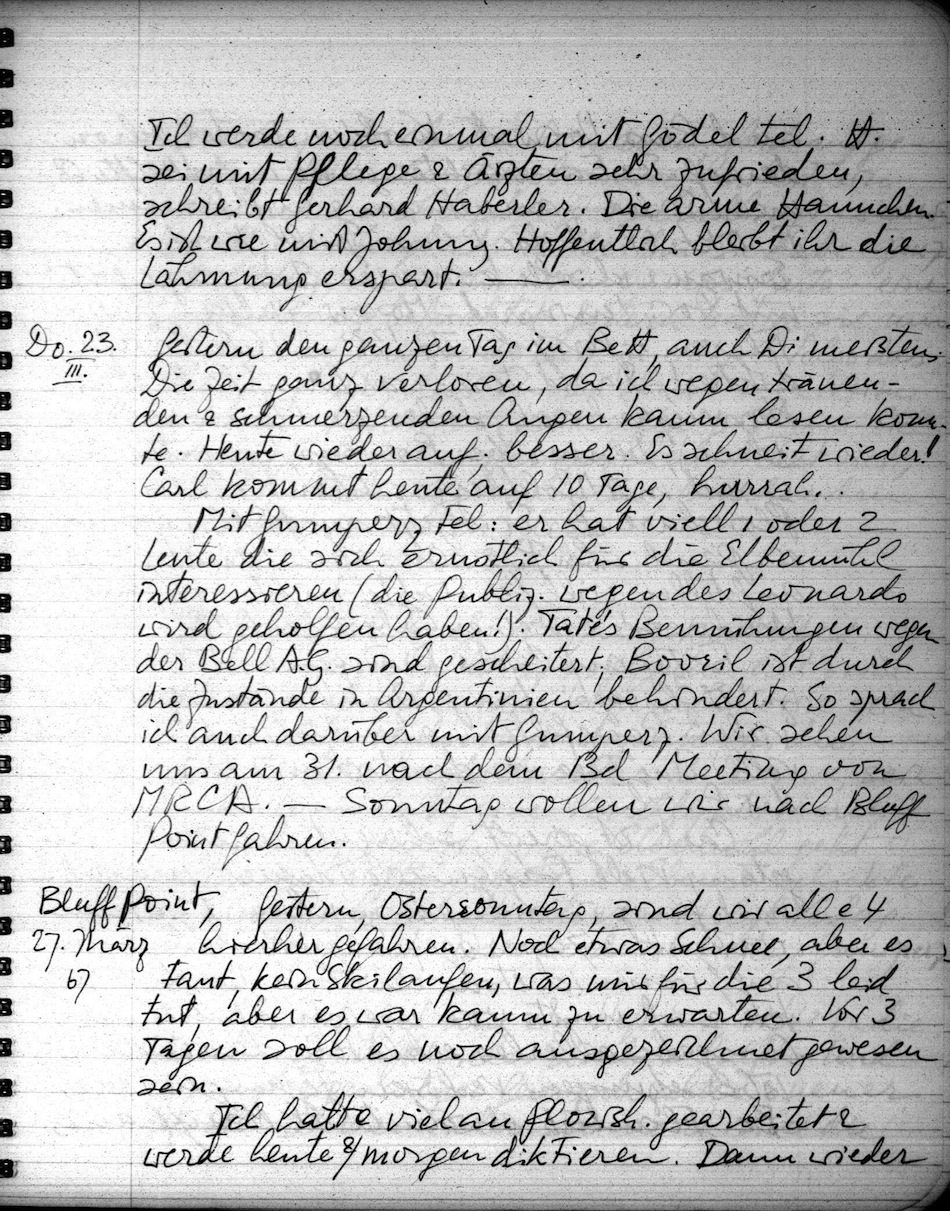 Ich werde noch einmal mit Gödel tel. H.
sei mit Pflege & Ärzten sehr zufrieden,
schreibt Gerhard Haberler. Die arme Hannchen.
Es ist wie mit Johnny. Hoffentlich bleibt ihr die
Lähmung erspart. ———.
Do. 23. Gestern den ganzen Tag im Bett, auch Di meisten.
III. Die Zeit ganz verloren, da ich wegen tränen-
den & schmerzenden Augen kaum lesen konn-
te. Heute wieder auf. besser. Es schneit wieder!
Carl kommt heute auf 10 Tage, hurrah..
Mit Gumperz Tel: er hat viell 1 oder 2
Leute die sich ernstlich für die Elbemühl
interessieren (die Publiz. wegen des Leonardo
wird geholfen haben!). Tate's Bemühungen wegen
der Bell A.G. sind gescheitert, Bovril ist durch
die Zustände in Argentinien behindert. So sprach
ich auch darüber mit Gumperz. Wir sehen
uns am 31. nach dem Bd Meeting von
MRCA. — Sonntag wollen wir nach Bluff
Point fahren.
Bluff Point, Gestern, Ostersonntag, sind wir alle 4
27. März hierher gefahren. Noch etwas Schnee, aber es
67 taut, kein Skilaufen, was mir für die 3 leid
tut, aber es war kaum zu erwarten. Vor 3
Tagen soll es noch ausgezeichnet gewesen
sein.
Ich hatte viel an gearbeitet &
werde heute &/morgen diktieren. Dann wieder